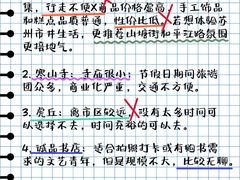 集，行走不便X商品价格虚高，手工饰品
和糕点品质普通，性价比低X若想体验苏
州市井生活，更推荐山塘街和平江路氛围
更接地气。
2.寒山寺：寺庙很小；节假日期间旅游
团众多，商业化严重，交通不方便。
3.虎丘：离市区较远，X没有太多时间可
以选择不去，时间充裕的可以去。
4.诚品书店：适合拍照打卡或有购书需
求的文艺青年，但是规模不大，比较无聊。